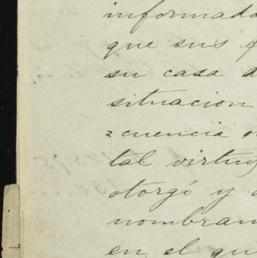 informado
que sus
su casa
situacion
cuencia
tal virtu
otorgó y
nombram
en el qu